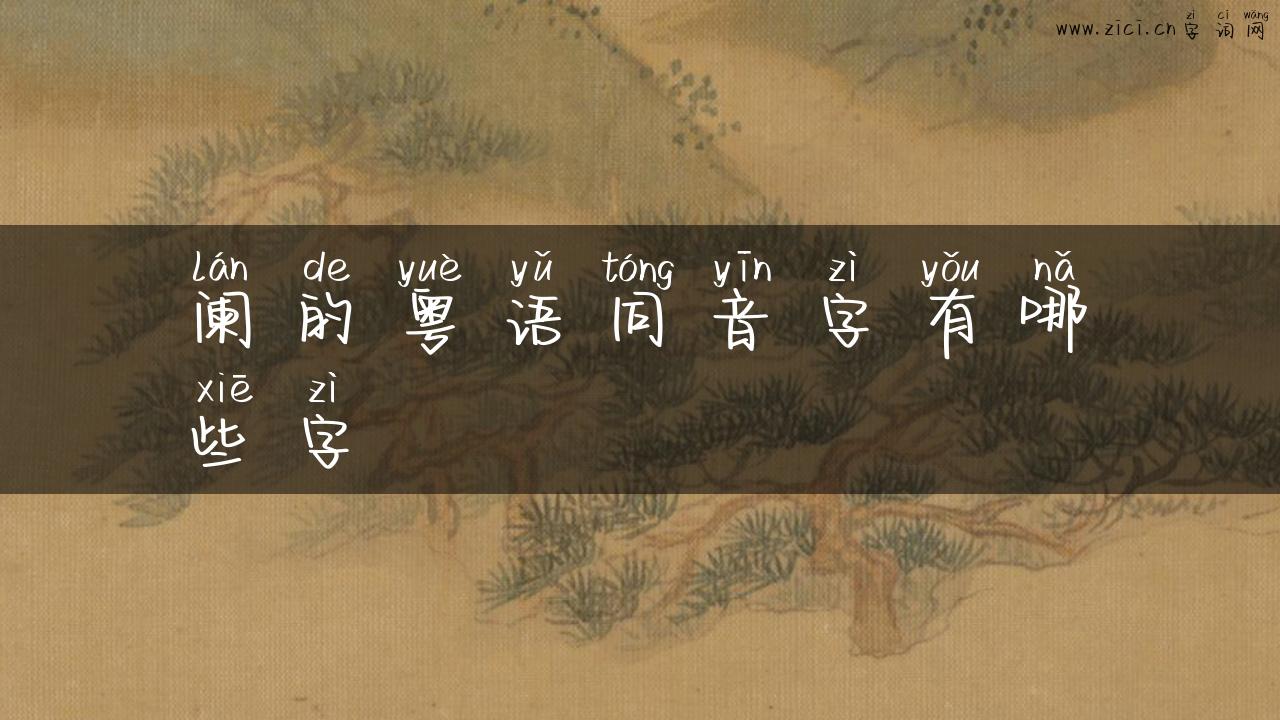 zì cí wǎng
www.zici.cn 字 词 网
lán de yuè yǔ tóng yīn zì yǒu nǎ
阑 的 粤 语 同 音 字 有 哪
xiē zì
些 字